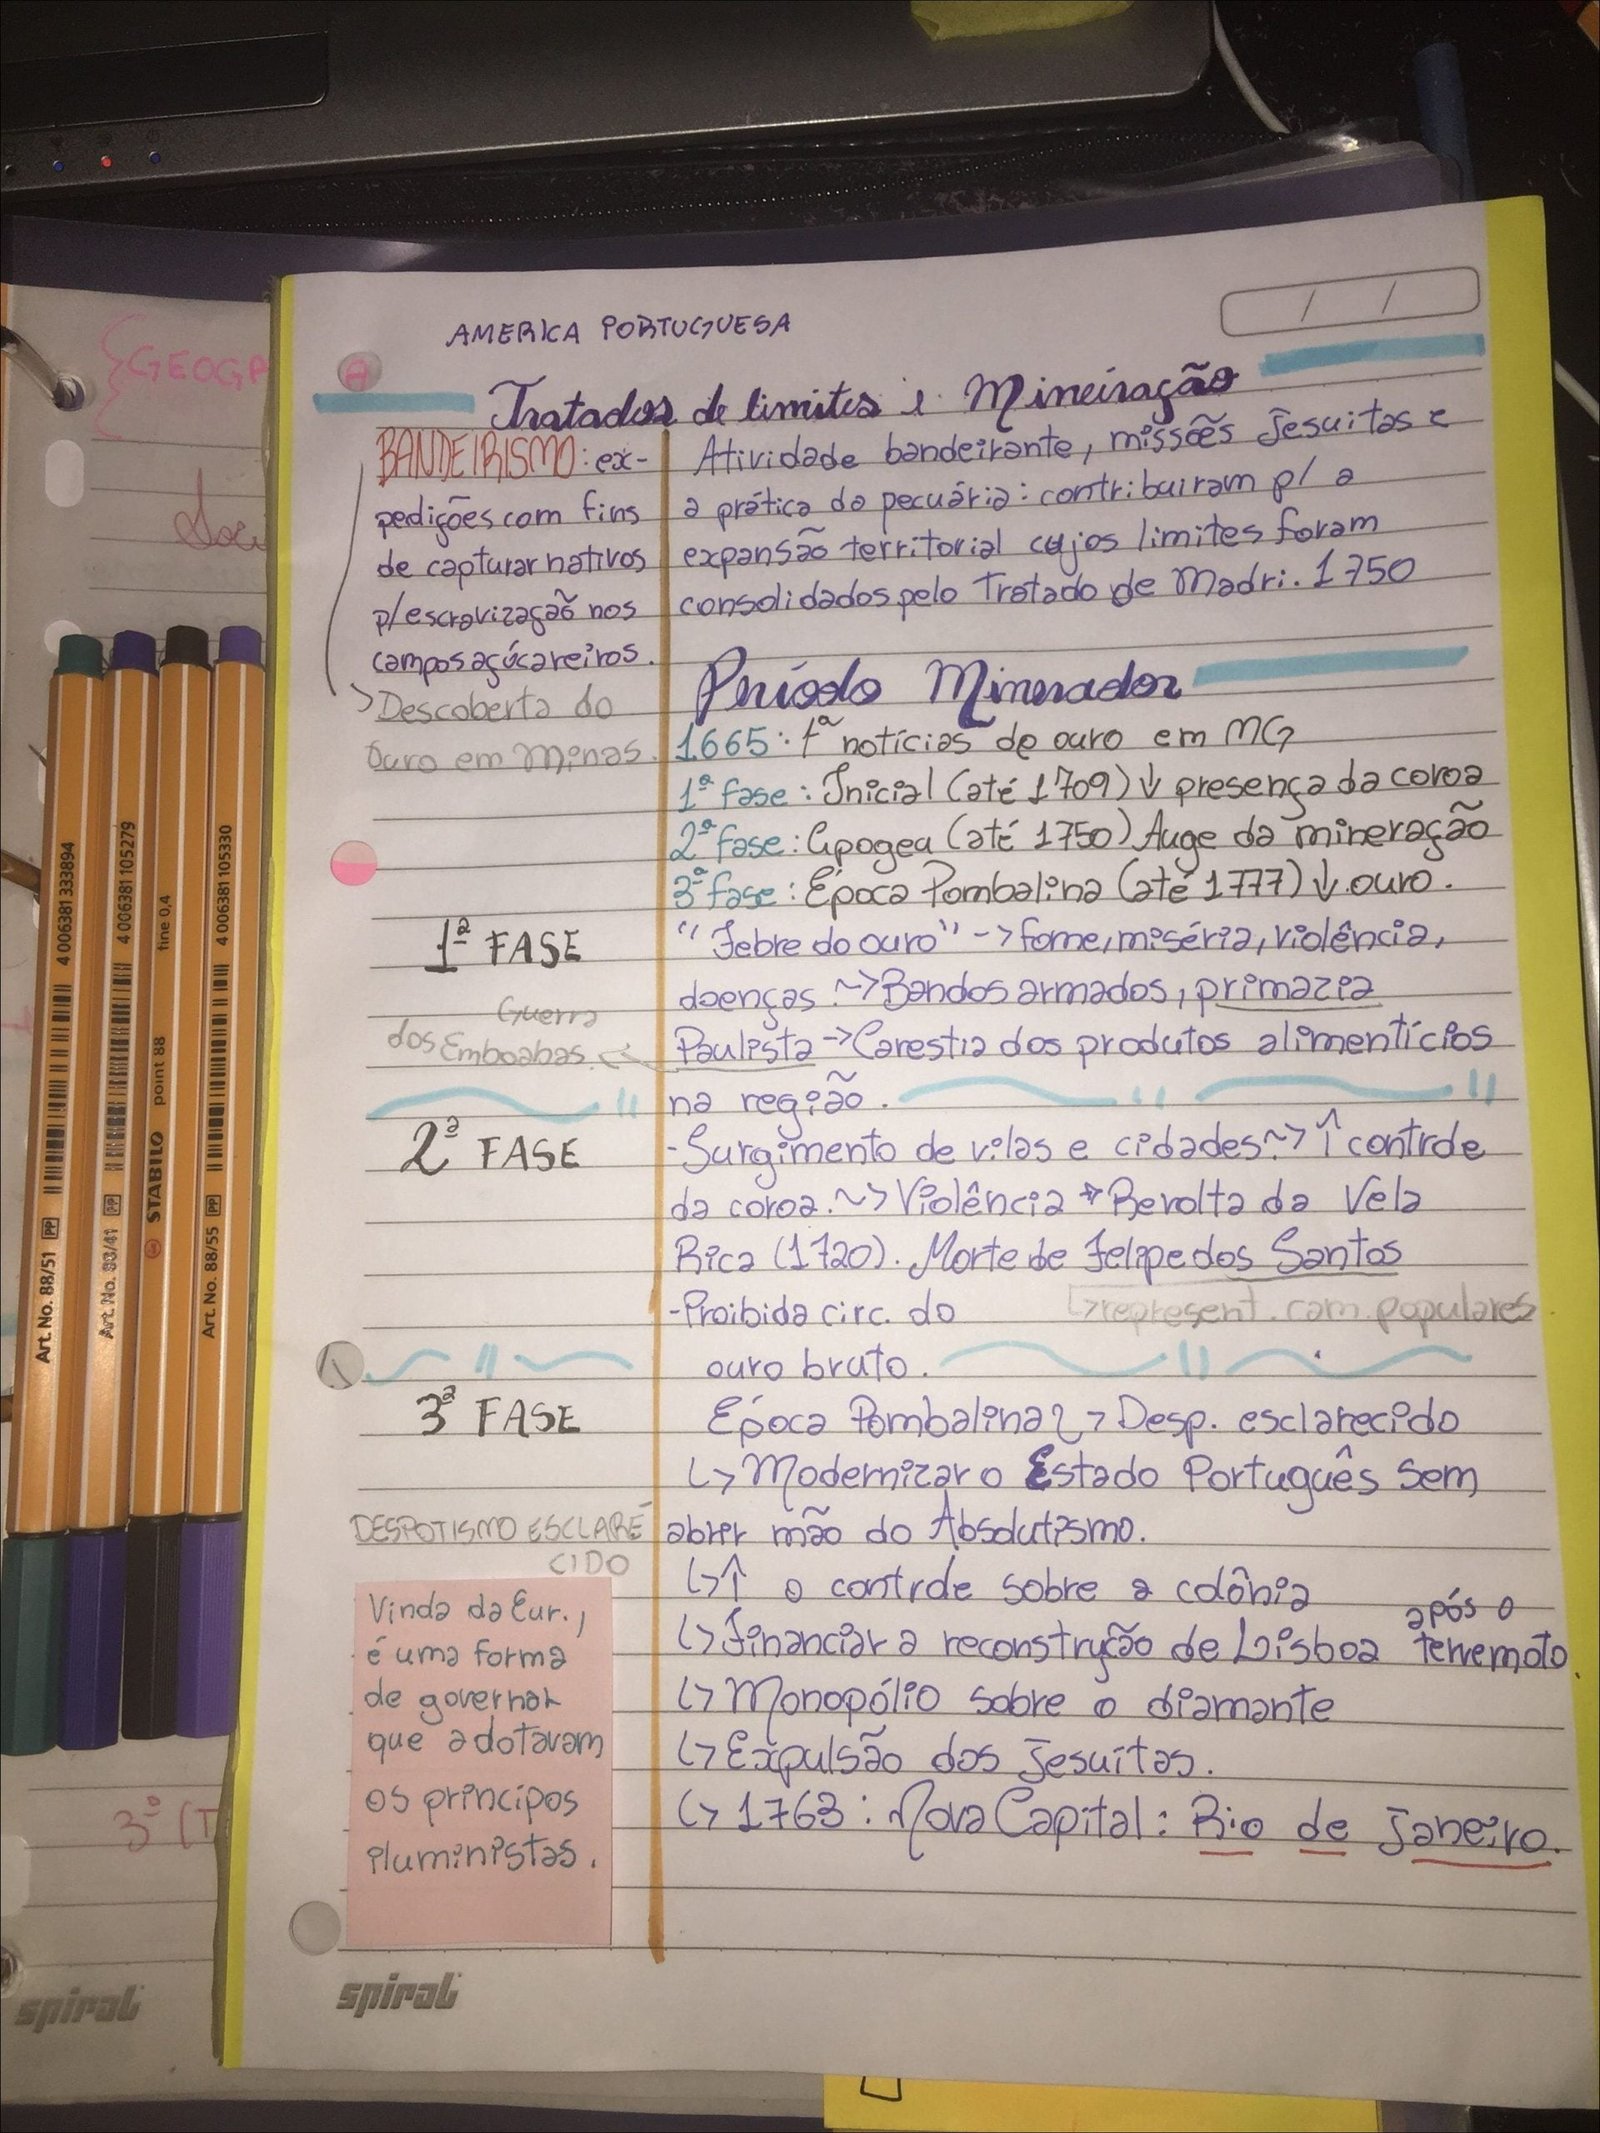 AMERICA PORTUGUESA
Tratados de limites e Mineiração
BANDEIRISMO: ex-
pedições com fins
de capturar nativos
p/escravização nos
campos açúcareiros.
Descoberta do
Ouro em Minas.
Atividade bandeirante, missões Jesuítas e
a prática da pecuária: contribuíram p/ a
expansão territorial cujos limites foram
consolidados pelo Tratado de Madri. 1750
Período Minerador
1665: 1ª notícias de ouro em MG
1ª fase: Inicial (até 1709) ↓ presença da coroa
2ª fase: Apogeu (até 1750) Auge da mineração
3ª fase: Época Pombalina (até 1777) ↓ ouro.
1ª FASE
"Febre do ouro" -> fome, miséria, violência,
doenças ~> Bandos armados, primazia
Paulista -> Carestia dos produtos alimentícios
na região.
Guerra
dos Emboabas <-
2ª FASE
-Surgimento de vilas e cidades ~> ↑ controle
da coroa. ~> Violência → Revolta da Vela
Rica (1720). Morte de Felipe dos Santos
↳ represent. cam. populares
-Proibida circ. do
ouro bruto.
3ª FASE
Época Pombalina ↳ Desp. esclarecido
↳ Modernizar o Estado Português sem
abrir mão do Absolutismo.
↳ ↑ o controle sobre a colônia
↳ Financiar a reconstrução de Lisboa após o
terremoto.
↳ Monopólio sobre o diamante
↳ Expulsão dos Jesuítas.
↳ 1763: Nova Capital: Rio de Janeiro.
DESPOTISMO ESCLARE
CIDO
Vinda da Eur.,
é uma forma
de governar
que adotavam
os princípos
iluministas.
spiral
spiral
{GEOGR
3º (T
Art. No. 88/51 PP 4 006381 333894
Art. No. 88/41 PP 4 006381 105279
STABILO point 88 fine 0,4
Art. No. 88/55 PP 4 006381 105330